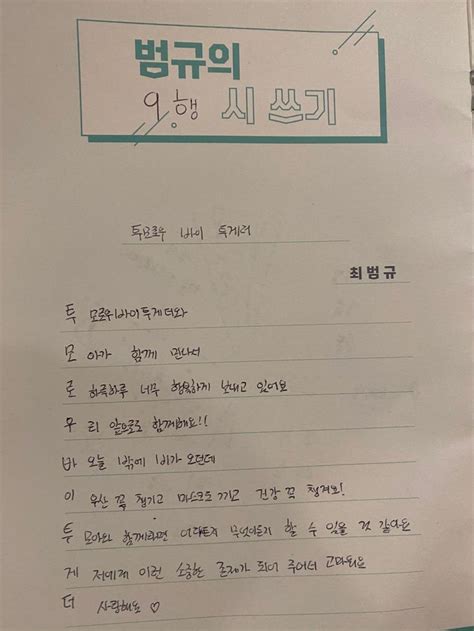 범규의
9행 시 쓰기
투모로우 바이 투게더
최범규
투 모로우바이투게더와
모 아가 함께 만나서
로 하루하루 너무 행복하게 보내고 있어요
우 리 앞으로도 함께해요!!
바 오늘 밖에 비가 오던데
이 우산 꼭 챙기고 마스크도 끼고 건강 꼭 챙겨요!
투 모아와 함께라면 어디든지 무엇이든지 할 수 있을 것 같아요
게 저에게 이런 소중한 존재가 되어 주어서 고마워요
더 사랑해요 ♡